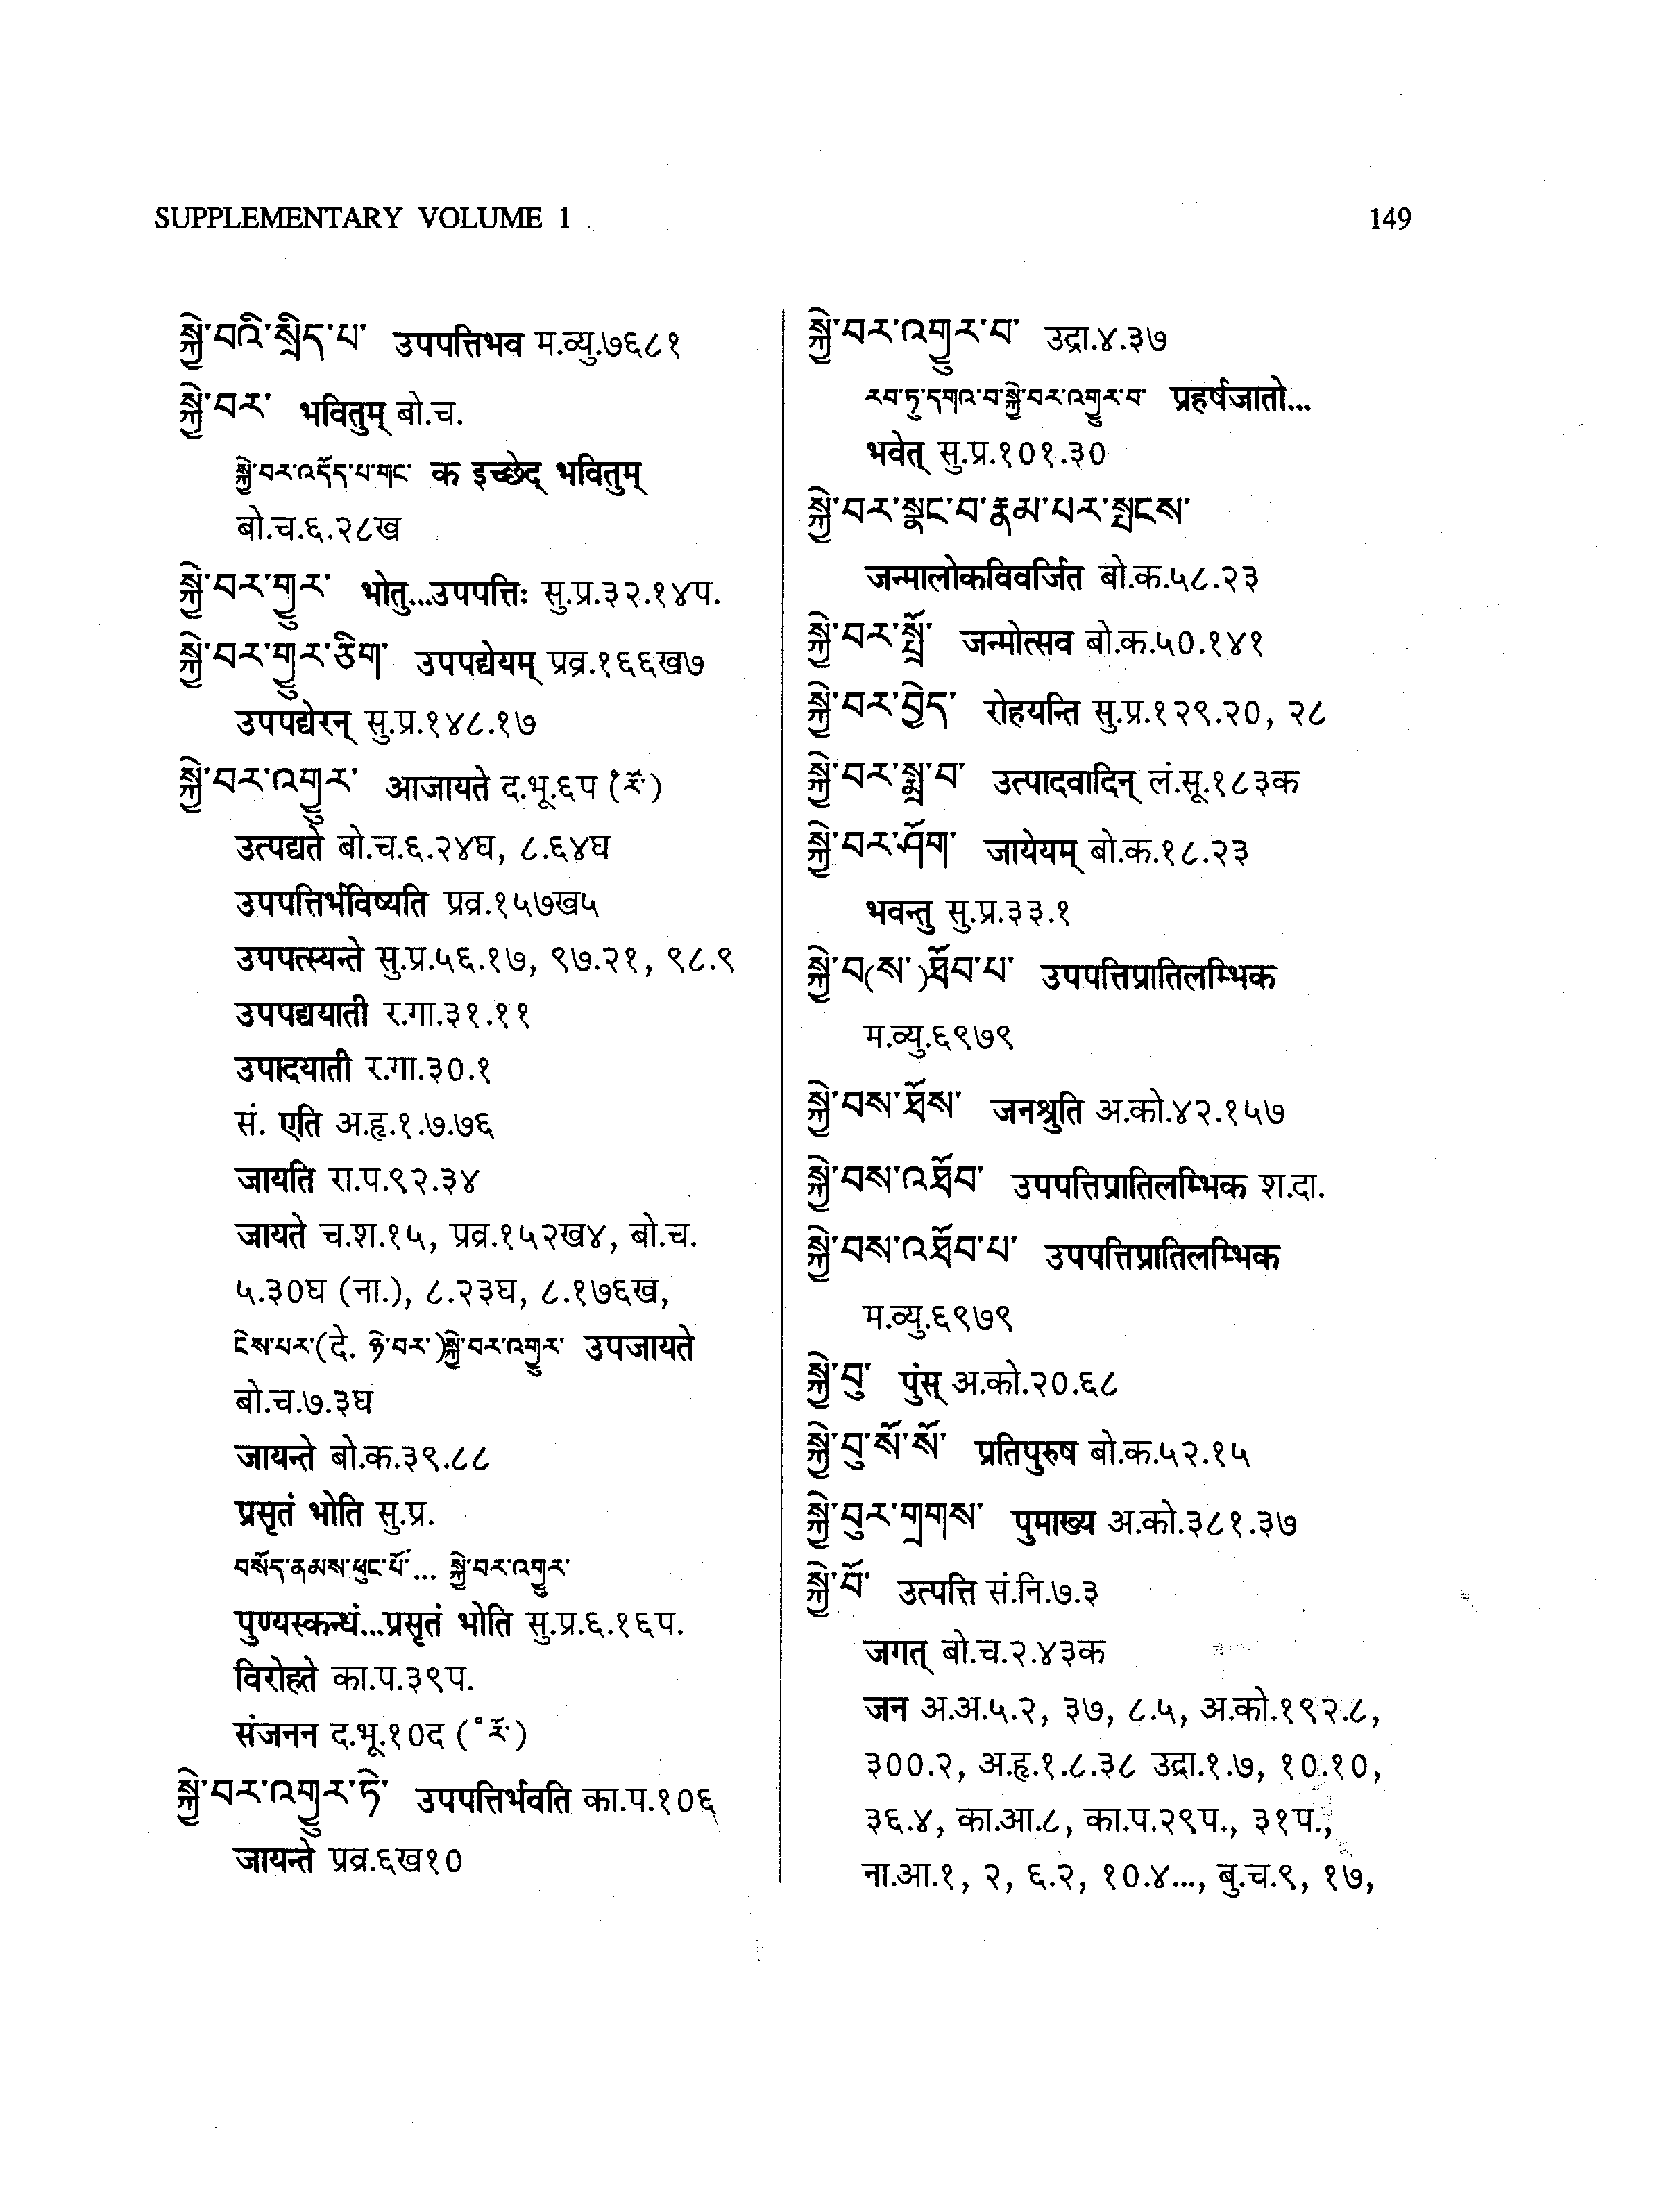 SUPPLEMENTARY VOLUME 1 149
སྐྱེ་བའི་སྲིད་པ་ उपपत्तिभव म.व्यु.७६८१
སྐྱེ་བར་ भवितुम् बो.च.
སྐྱེ་བར་འདོད་པ་གང་ क इच्छेद् भवितुम्
बो.च.६.२८ख
སྐྱེ་བར་གྱུར་ भोतु...उपपत्तिः सु.प्र.३२.१४प.
སྐྱེ་བར་གྱུར་ཅིག་ उपपद्येयम् प्रव्र.१६६ख७
उपपद्येरन् सु.प्र.१४८.१७
སྐྱེ་བར་འགྱུར་ आजायते द.भू.६प (°རོ་)
उत्पद्यते बो.च.६.२४घ, ८.६४घ
उपपत्तिर्भविष्यति प्रव्र.१५७ख५
उपपत्स्यन्ते सु.प्र.५६.१७, ९७.२१, ९८.९
उपपद्ययाती र.गा.३१.११
उपादयाती र.गा.३०.१
सं. एति अ.हृ.१.७.७६
जायति रा.प.९२.३४
जायते च.श.१५, प्रव्र.१५२ख४, बो.च.
५.३०घ (ना.), ८.२३घ, ८.१७६ख,
ངེས་པར་(दे. ཉེ་བར་)སྐྱེ་བར་འགྱུར་ उपजायते
बो.च.७.३घ
जायन्ते बो.क.३९.८८
प्रसृतं भोति सु.प्र.
བསོད་ནམས་ཕུང་པོ་... སྐྱེ་བར་འགྱུར་
पुण्यस्कन्धं...प्रसृतं भोति सु.प्र.६.१६प.
विरोहते का.प.३९प.
संजनन द.भू.१०द (°རོ་)
སྐྱེ་བར་འགྱུར་ཏེ་ उपपत्तिर्भवति का.प.१०६
जायन्ते प्रव्र.६ख१०
སྐྱེ་བར་འགྱུར་བ་ उद्रा.४.३७
རབ་ཏུ་དགའ་བ་སྐྱེ་བར་འགྱུར་བ་ प्रहर्षजातो...
भवेत् सु.प्र.१०१.३०
སྐྱེ་བར་སྣང་བ་རྣམ་པར་སྤངས་
जन्मालोकविवर्जित बो.क.५८.२३
སྐྱེ་བར་སྤྲོ་ जन्मोत्सव बो.क.५०.१४१
སྐྱེ་བར་བྱེད་ रोहयन्ति सु.प्र.१२९.२०, २८
སྐྱེ་བར་སྨྲ་བ་ उत्पादवादिन् लं.सू.१८३क
སྐྱེ་བར་ཤོག་ जायेयम् बो.क.१८.२३
भवन्तु सु.प्र.३३.१
སྐྱེ་བ(ས་)ཐོབ་པ་ उपपत्तिप्रातिलम्भिक
म.व्यु.६९७९
སྐྱེ་བས་ཐོས་ जनश्रुति अ.को.४२.१५७
སྐྱེ་བས་འཐོབ་ उपपत्तिप्रातिलम्भिक श.दा.
སྐྱེ་བས་འཐོབ་པ་ उपपत्तिप्रातिलम्भिक
म.व्यु.६९७९
སྐྱེ་བུ་ पुंस् अ.को.२०.६८
སྐྱེ་བུ་སོ་སོ་ प्रतिपुरुष बो.क.५२.१५
སྐྱེ་བུར་གྲགས་ पुमाख्य अ.को.३८१.३७
སྐྱེ་བོ་ उत्पत्ति सं.नि.७.३
जगत् बो.च.२.४३क
जन अ.अ.५.२, ३७, ८.५, अ.को.१९२.८,
३००.२, अ.हृ.१.८.३८ उद्रा.१.७, १०.१०,
३६.४, का.आ.८, का.प.२९प., ३१प.,
ना.आ.१, २, ६.२, १०.४..., बु.च.९, १७,